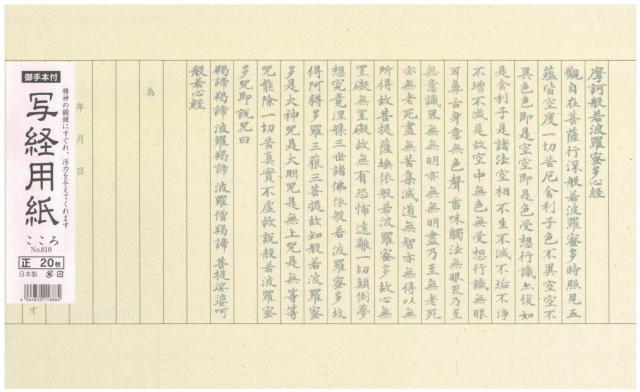 摩訶般若波羅蜜多心経
観自在菩薩行深般若波羅蜜多時照見五
蘊皆空度一切苦厄舎利子色不異空空不
異色色即是空空即是色受想行識亦復如
是舎利子是諸法空相不生不滅不垢不浄
不増不減是故空中無色無受想行識無眼
耳鼻舌身意無色聲香味觸法無眼界乃至
無意識界無無明亦無無明盡乃至無老死
亦無老死盡無苦集滅道無智亦無得以無
所得故菩提薩埵依般若波羅蜜多故心無
罣礙無罣礙故無有恐怖遠離一切顛倒夢
想究竟涅槃三世諸佛依般若波羅蜜多故
得阿耨多羅三藐三菩提故知般若波羅蜜
多是大神咒是大明咒是無上咒是無等等
咒能除一切苦真實不虚故説般若波羅蜜
多咒即説咒曰
羯諦羯諦 波羅羯諦 波羅僧羯諦 菩提娑婆呵
般若心経
為
年 月 日
才
御手本付
精神の鍛錬にすぐれ、活力を与えてくれます
写経用紙
こころ
No.810
正 20枚
日本製